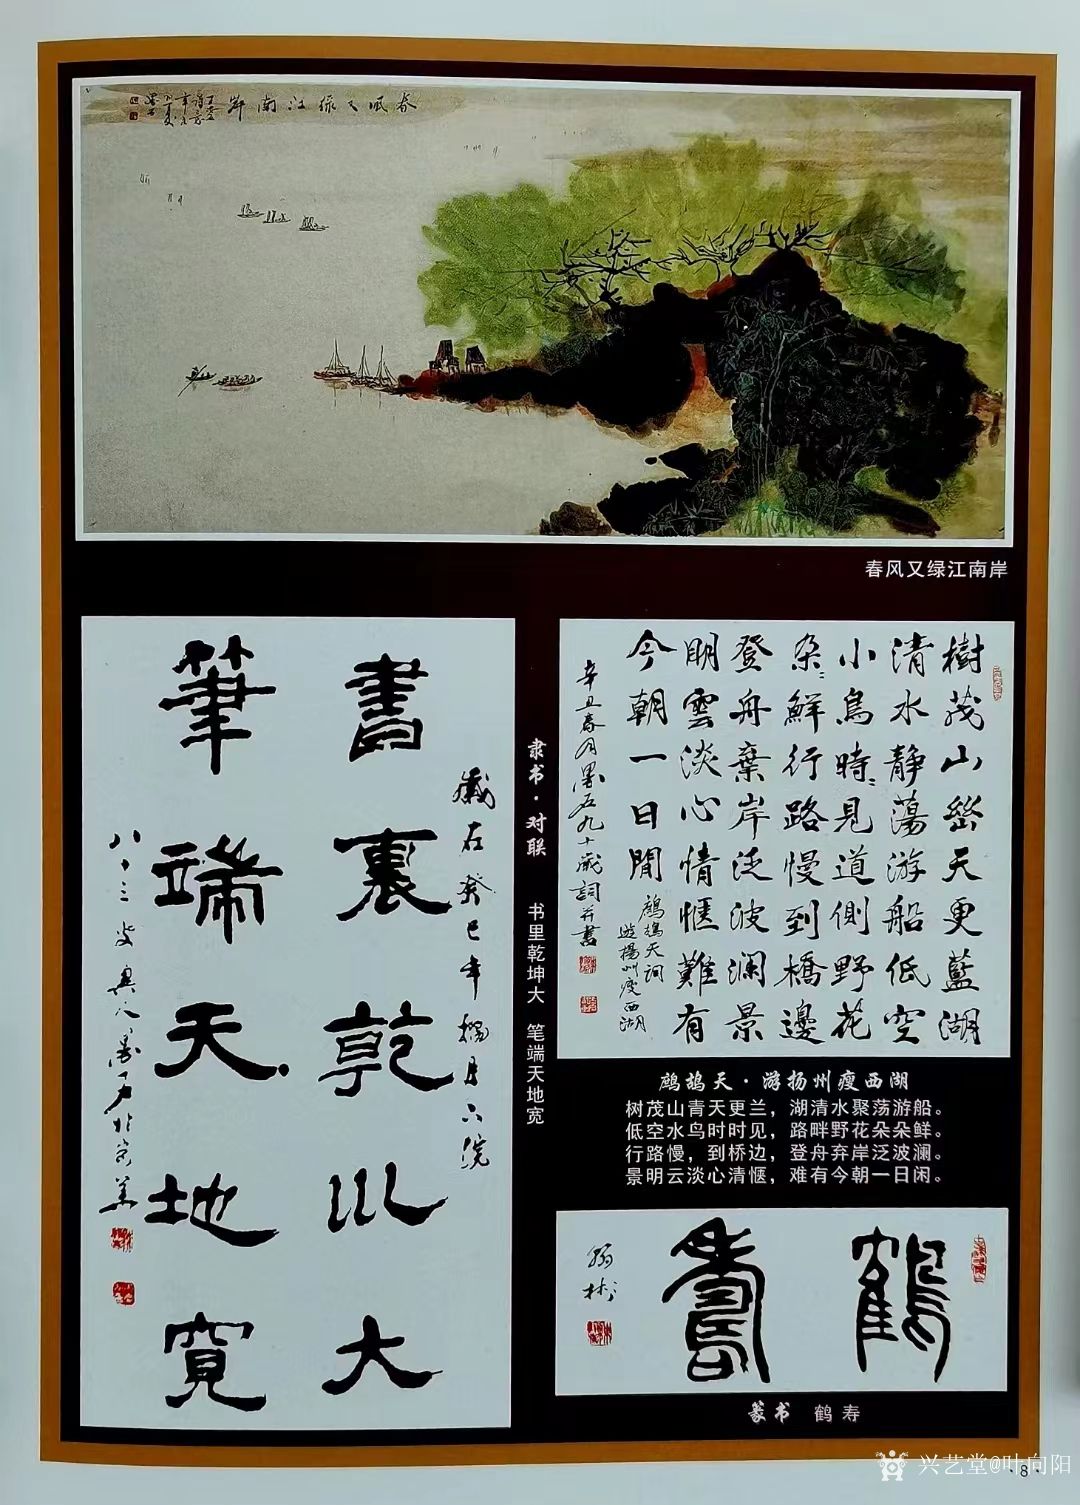 春風又绿江南岸
春风又绿江南岸
書裏乾巛大
歲在癸巳年
筆端天地寬
八十三叟
隶书·对联 书里乾坤大 笔端天地宽
樹茂山 天更藍湖
清水静蕩游船低空
小鳥時〻見道側野花
朵〻鮮行路慢到橋邊
登舟棄岸泛波澜景
明雲淡心情愜難有
今朝一日閒
鹧鸪天词
遊揚州瘦西湖
辛丑春月墨五九十歲詞并書
鹧鸪天·游扬州瘦西湖
树茂山青天更兰，湖清水聚荡游船。
低空水鸟时时见，路畔野花朵朵鲜。
行路慢，到桥边，登舟弃岸泛波澜。
景明云淡心清惬，难有今朝一日闲。
鶴壽
篆书 鹤寿
兴艺堂@叶向阳
·8·